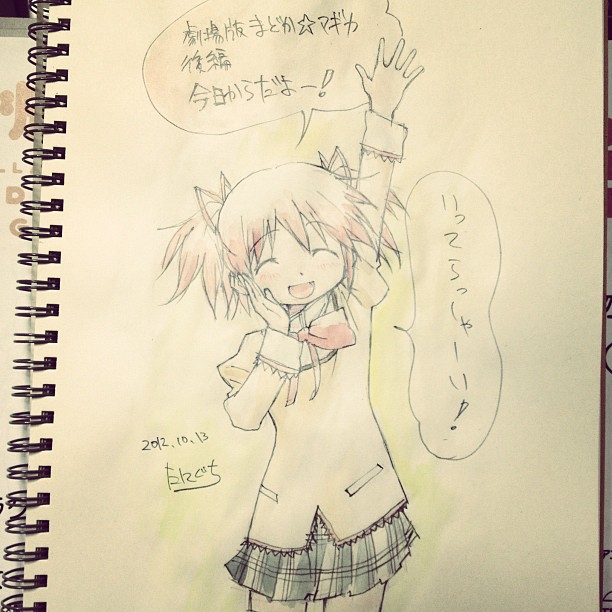 劇場版まどか☆マギカ
後編
今日からだよー!
いってらっしゃーい!
2012.10.13
たにぐち